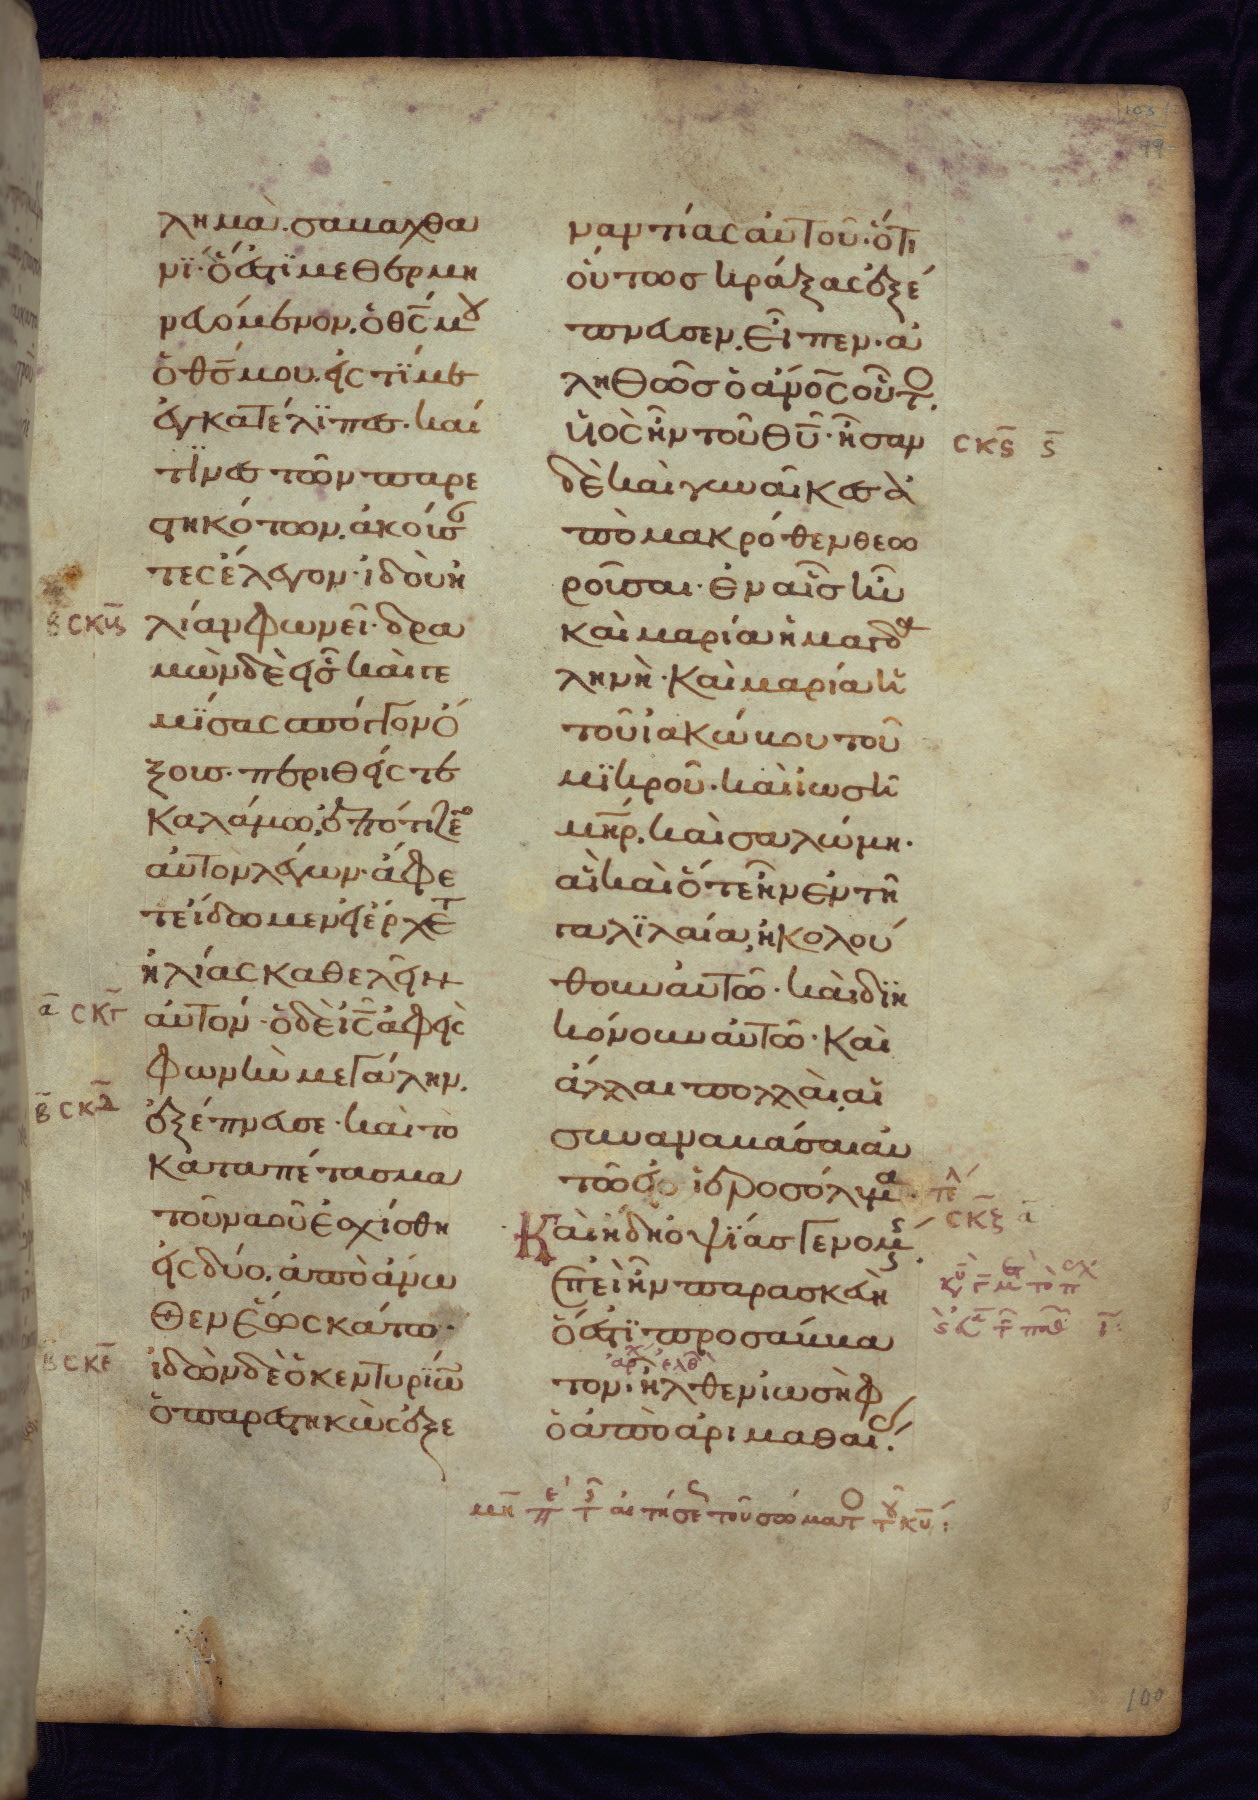 λημὰ· σαμαχθα
νϊ· ὅ ἐστϊ μεθερμη
νευόμενον, ὁ θ̅ς̅ μου
ὁ θ̅ς̅ μου· εἰς τί με
ἐγκατέλϊπες· καί
τϊνες τῶν παρε
στηκότων, ἀκούσαν
τες ἔλεγον· ἰδοὺ ἠ
λίαν φωνεῖ· δρα
μὼν δὲ εἷς καὶ γε
μίσας σπόγγον ὄ
ξους· περιθεὶς τε
καλάμω, ἐπότιζεν
αὐτὸν λέγων· ἄφε
τε ἴδωμεν εἰ ἔρχεται
ἠλίας καθελεῖν
αὐτόν· ὁ δὲ ι̅ς̅ ἀφεὶς
φωνὴν μεγάλην,
ἐξέπνευσε· καὶ τὸ
καταπέτασμα
τοῦ ναοῦ ἐσχίσθη
εἰς δύο, ἀπὸ ἄνω
θεν ἕως κάτω·
ἰδὼν δὲ ὁ κεντυρίων
ὁ παρεστηκὼς ἐξ ε
ναντίας αὐτοῦ· ὅτι
οὕτως κράξας ἐξέ
πνευσεν, εἶπεν· ἀ
ληθῶς ὁ ἄνος οὗτος,
υἱὸς ἦν τοῦ θ̅υ̅· ἦσαν
δὲ καὶ γυναῖκες ἀ
πὸ μακρόθεν θεω
ροῦσαι· ἐν αἷς ἦν
καὶ μαρία ἡ μαγδα
ληνὴ· καὶ μαρία ἡ
τοῦ ἰακώβου τοῦ
μϊκροῦ· καὶ ἰωσῆ
μηρ, καὶ σαλώμη·
αἳ καὶ ὅτε ἦν ἐν τῆ
γαλϊλαία, ἠκολού
θουν αὐτῶ· καὶ διη
κόνουν αὐτῶ· καὶ
ἄλλαι πολλαὶ, αἱ
συναναβᾶσαι αὐ
τῶ εἰς ἱεροσόλυμα·
Καὶ ἤδη ὀψϊάς γενομένης,
ἐπεὶ ἦν παρασκευὴ
ὅ ἐστϊ προσάββα
τον· ἦλθεν ἰωσὴφ
ὁ ἀπὸ ἀριμαθαίας·
σ̅κ̅ϛ̅ ϛ̅
β σ̅κ̅β̅
α̅ σκγ̅
β̅ σκδ̅
β σκε̅
σκζ̅ α̅
100